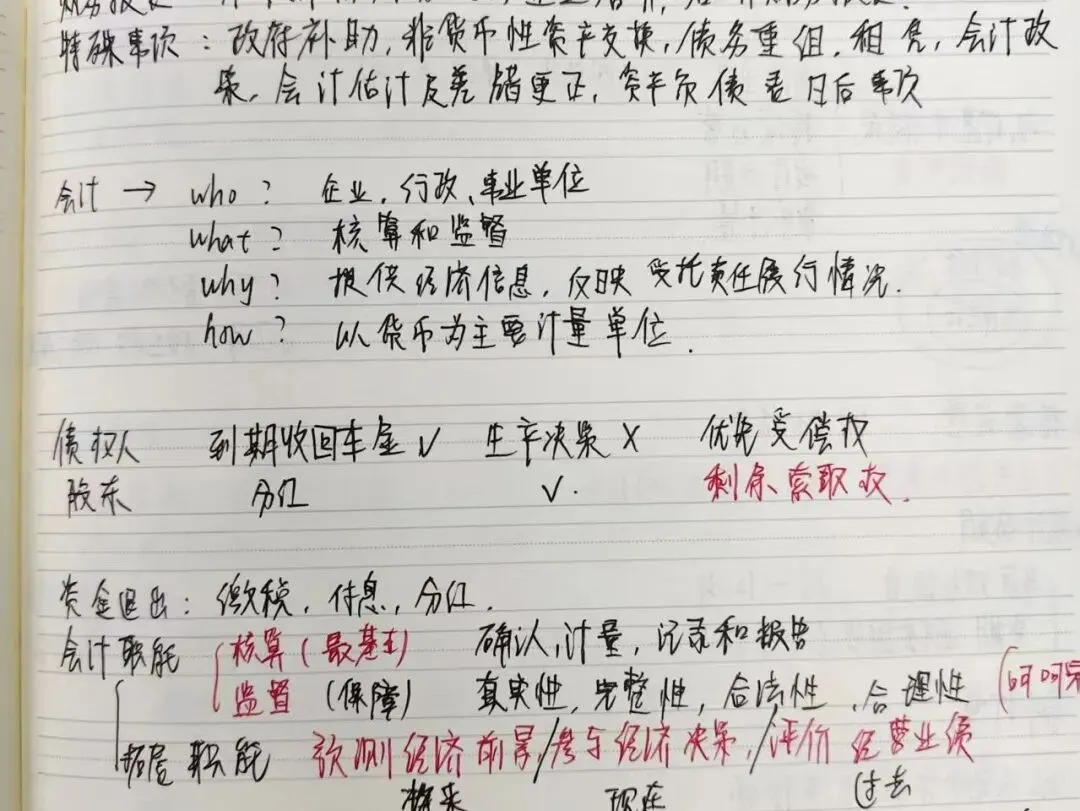 特殊事项：政府补助，非货币性资产交换，债务重组，租赁，会计政
策，会计估计及差错更正，资产负债表日后事项
会计 → who？ 企业，行政、事业单位
what？ 核算和监督
why？ 提供经济信息，反映受托责任履行情况.
how？ 以货币为主要计量单位.
债权人 到期收回本金 √ 生产决策 X 优先受偿权
股东 分红 √. 剩余索取权.
资金退出：缴税，付息，分红.
会计职能 核算（最基本） 确认，计量，记录和报告
监督（保障） 真实性，完整性，合法性，合理性
拓展职能 预测经济前景/参与经济决策/评价经营业绩
将来 现在 过去